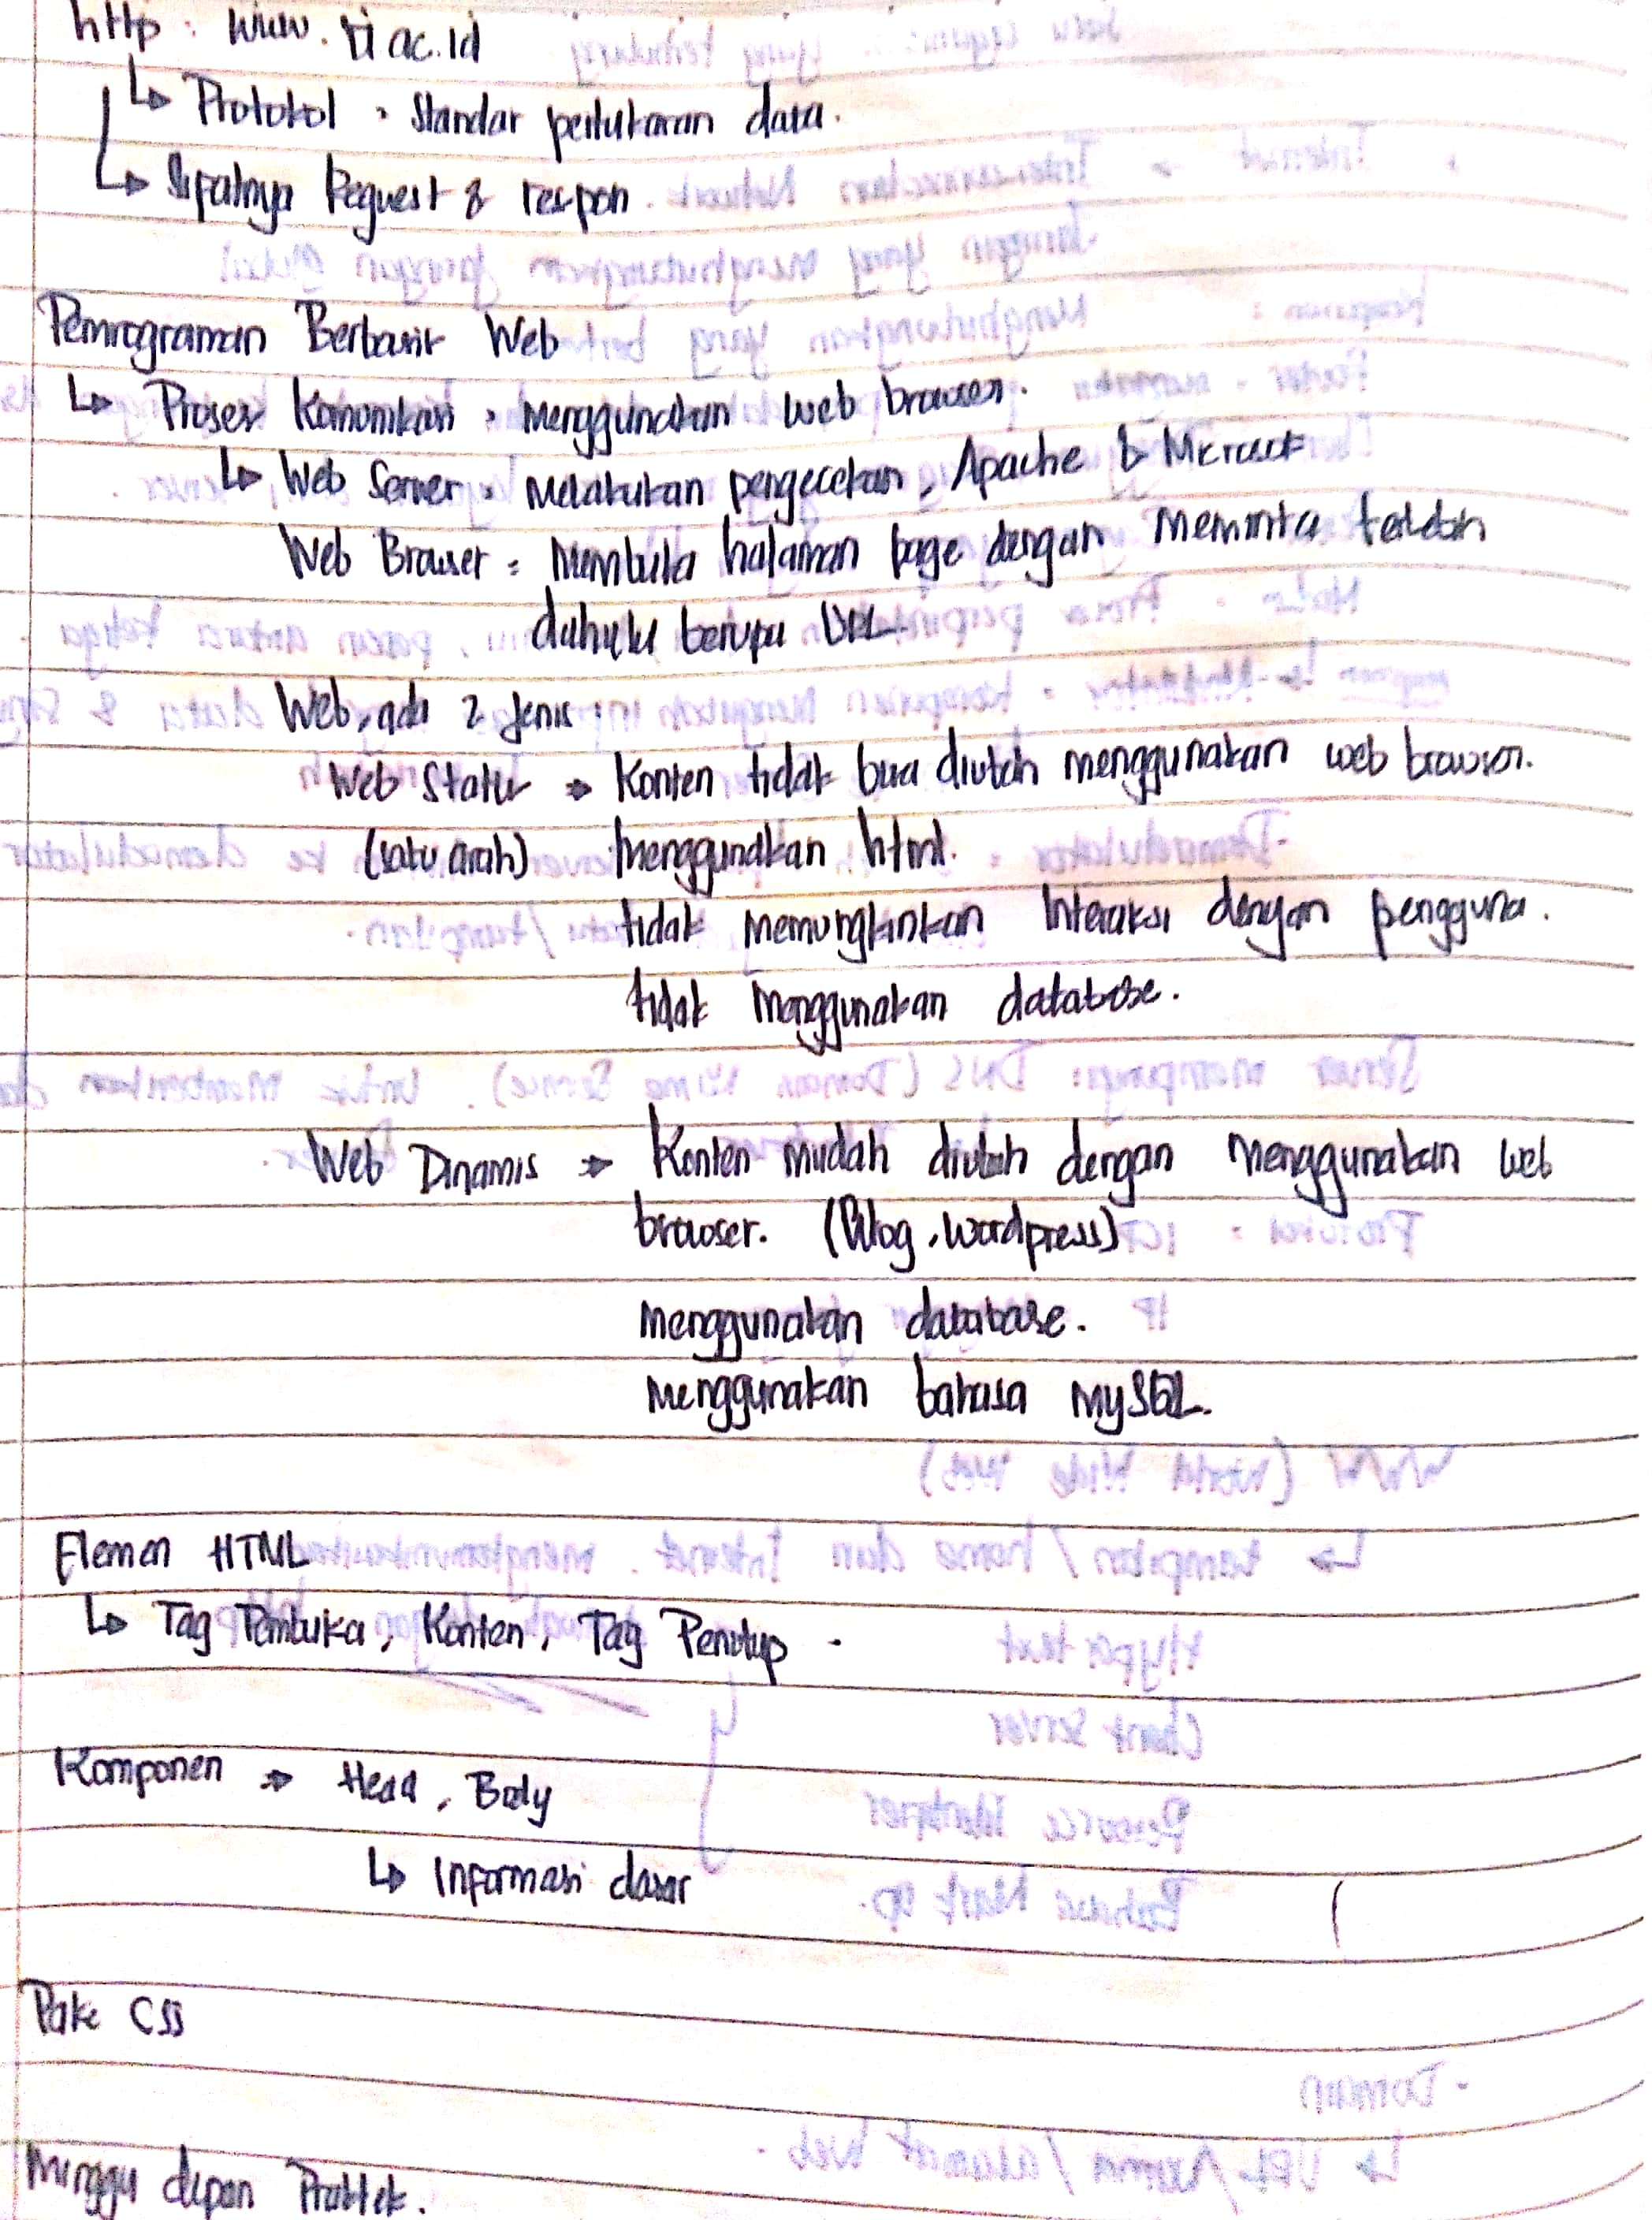 http : www. ti ac.id
↳ Protokol : Standar pertukaran data.
↳ Sifatnya Request & respon.
Pemrograman Berbasis Web
↳ Proses Komunikasi : menggunakan web browser.
↳ Web Server : Melakukan pengecekan, Apache & Microsoft
Web Browser : Membuka halaman page dengan meminta terlebih
dahulu berupa URL.
Web, ada 2 jenis :
Web Statis → Konten tidak bisa diubah menggunakan web browser.
(satu arah) menggunakan html.
tidak memungkinkan Interaksi dengan pengguna.
tidak menggunakan database.
Web Dinamis → Konten mudah diubah dengan menggunakan web
browser. (Blog, Wordpress)
menggunakan database.
menggunakan bahasa MySQL.
Elemen HTML
↳ Tag Pembuka, Konten, Tag Penutup .
Komponen → Head, Body
↳ Informasi dasar
Pake CSS
Minggu depan Praktek.